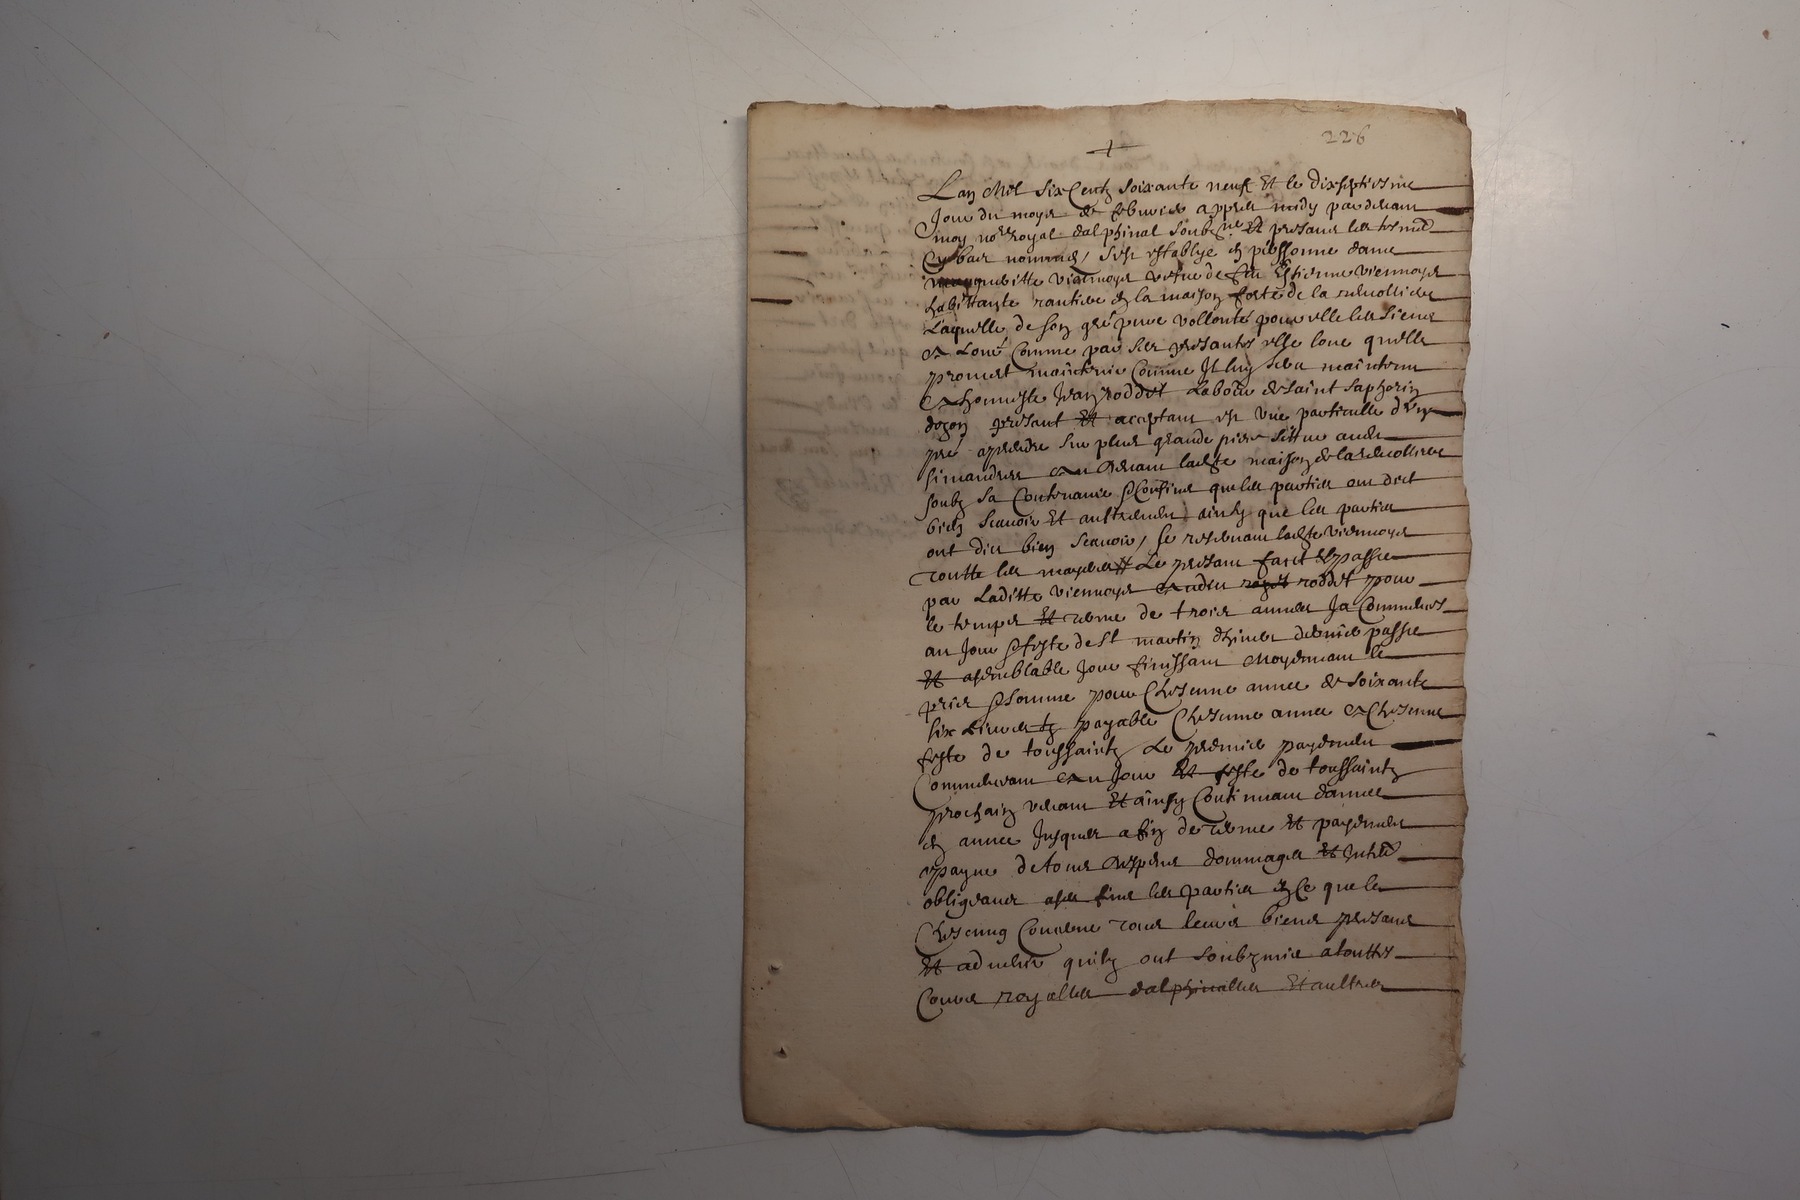 226
Lan Mil Six Centz soixante neuf Et le dixseptiesme
Jour du moys de febvrier appres midy pardevant
moy no.re royal dalphinal soubz.ne Et presans les tesm.
Cy bas nommes / sest establye en personne dame
margueritte viennoys vefve de feu Estienne viennoys
habittante rantiere en la maison forte de la
Laquelle de son gré pure vollonté pour elle les siens
a Loué Comme par ses presantes elle loue quelle
promet maintenir Comme Il luy sera maintenu
a honneste Jean roddet Labour de saint saphorin
dozon presant Et acceptant est une particulle dun
pré a prendre sur plus grande piece sittue audit
simandres au devant ladite maison de la
soubz sa Contenance & Confins que les parties ont dict
bien scavoir Et aultrement ainsy que les parties
ont dict bien scavoir / se reservant ladite viennoys
toutte les Le presant faict & passe
par Laditte viennoys audit roddet pour
le temps Et terme de trois annees Ja Commences
au Jour & feste de St martin dhiver dernier passe
Et a semblable Jour finissant Moyennant le
pris & somme pour Chescune annee de soixante
six Livres payable Chescune annee a Chescune
feste de toussaintz Le premier payement
Commencant au Jour Et feste de toussaintz
prochain venant Et ainsy Continuant dannee
en annee Jusques a fin de terme Et payement
a payne de tous despens dommages Et Intere
obligeants a ses fins les parties en Ce que les
Chescung Conserne tous leurs biens presans
Et advenir quilz ont soubzmis a touttes
Cours royalles dalphinalles Et aultres